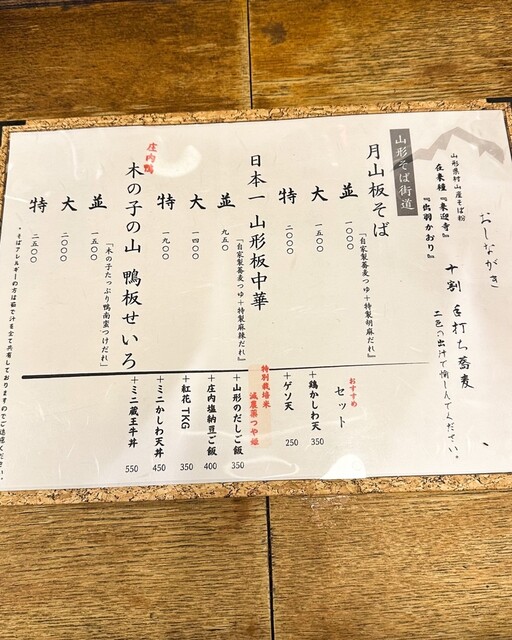 おしながき
十割 手打ち蕎麦
二色の出汁で愉しんでください。
山形県村山産そば粉
在来種『来迎寺』
『出羽かおり』
山形そば街道
月山板そば
『自家製蕎麦つゆ＋特製胡麻だれ』
並 一〇〇〇
大 一五〇〇
特 二〇〇〇
日本一 山形板中華
『自家製蕎麦つゆ＋特製麻辣だれ』
並 九五〇
大 一四〇〇
特 一九〇〇
庄内鴨
木の子の山 鴨板せいろ
「木の子たっぷり鴨南蛮つけだれ」
並 一五〇〇
大 二〇〇〇
特 二五〇〇
おすすめ
セット
＋鶏かしわ天 350
＋ゲソ天 250
特別栽培米
減農薬つや姫
＋山形のだしご飯 350
＋庄内塩納豆ご飯 400
＋紅花TKG 350
＋ミニかしわ天丼 450
＋ミニ蔵王牛丼 550
・そばアレルギーの方は茹で汁を全て共有しておりますのでご遠慮ください。